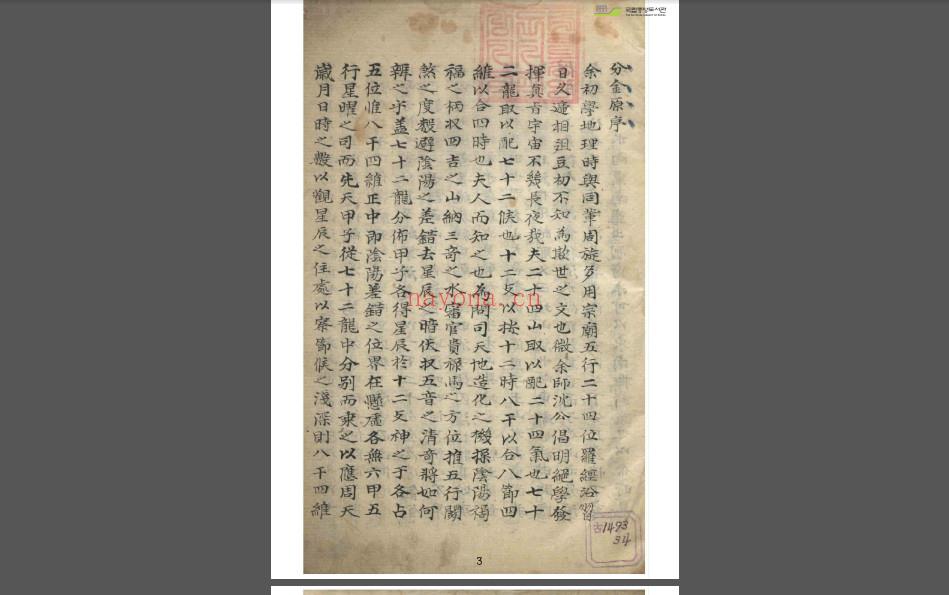 分金原序
余初學地理時與同輩周旋多用宗廟五行二十四位羅經沿習
日久遞相沮豆初不知為欺世之文也微余師沈公倡明絕學發
揮真旨宇宙不幾長夜哉夫二十四山取以配二十四氣也七十
二龍取以配七十二候也十二支以按十二時八干以合八節四
維以合四時也夫人而知之也為問司天地造化之機操陰陽禍
福之柄収四吉之山納三奇之水審官貴祿馬之方位推五行關
煞之度殺避陰陽之差錯去星辰之暗伏収五音之清奇將如何
辨之乎盖七十二龍分佈甲子各得星辰於十二支神之于各占
五位惟八干四維正中即陰陽差錯之位界在懸虛各無六甲五
行星曜之司而先天甲子從七十二龍中分别而乘之以應周天
歲月日時之數以觀星辰之住處以察節候之淺深則八干四維
國립중앙도서관
nayona.cn
古1493
34
3